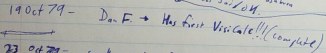 19 Oct 79 - Don F. → Has first Visicalc!!! (complete)
23 Oct 79